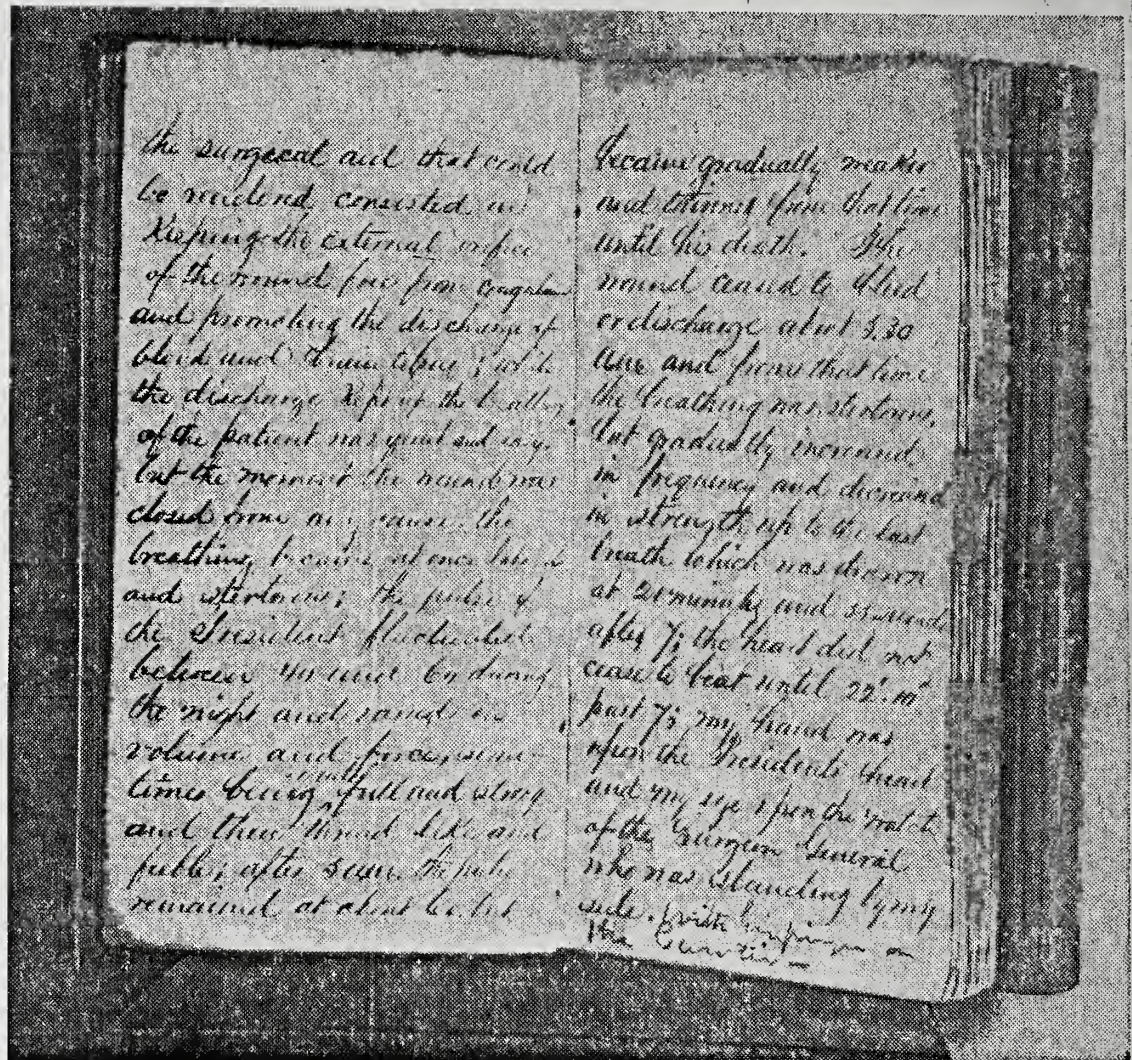 the surgical aid that could
be rendered consisted in
Keeping the external orifice
of the wound free from coagulum
and promoting the discharge of
blood and brain tissue; while
the discharge kept up the breathing
of the patient was quiet and easy.
but the moment the wound was
closed from any cause, the
breathing became at once
and stertorous; the pulse of
the President fluctuated
between and 60 during
the night and varied in
volume and force, some
times being full and strong
and then thread like and
feeble; after seven the pulse
remained at about but
became gradually weaker
and thinner from that time
until his death. The
wound ceased to bleed
or discharge about 5.30
am and from that time
the breathing was stertorous,
but gradually increased
in frequency and decreased
in strength up to the last
breath which was drawn
at 21 minutes and 55 seconds
after 7; the heart did not
cease to beat until 22' 10"
past 7; my hand was
upon the Presidents heart
and my eye upon the watch
of the Surgeon General
who was standing by my
side. with his finger on
the